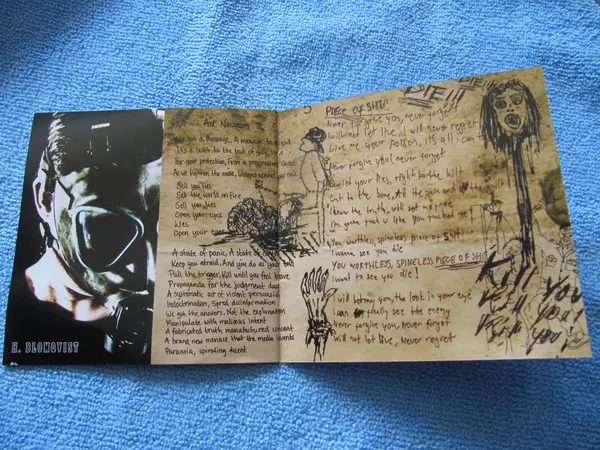 H. BLOMQVIST
Age Nauseam
We got a message, A message to
It's a shot in the back of
For your protection, from a progressive
Sell you lies
Set the world on fire
Sell you lies
Open your eyes
Lies
Open your eyes
A state of panic, A state of
Keep you afraid, And you do as your told
Pull the trigger, kill until you feel brave
Propaganda for the judgment day
A systematic act of violent persuasion
Indoctrination, Spread disinformation
We got the answers, Not the explanation
Manipulate with malicious intent
A fabricated truth, manufactured consent
A brand new menace that the media invents
Paranoia, spiraling decent
DIE!!
DIE!!!
PIECE OF SHIT!!
forgive you, never forget
Will not let live, I will never regret
Give me your poison, it's all I can
Never forgive you, never forget
your lies, right to the hilt
Cut to the bone, All the pain and the guilt
I know the truth, will set me free
I'm gonna fuck u like you fucked me!
You worthless, spineless piece of SHIT!
I wanna see you die
YOU WORTHLESS, SPINELESS PIECE OF SHIT
I want to see you die!
I will betray you, the look in your eye
I can finally see the enemy
Never forgive you, Never forget
Will not let live, Never regret
Kill You!
Kill You!
Kill You!